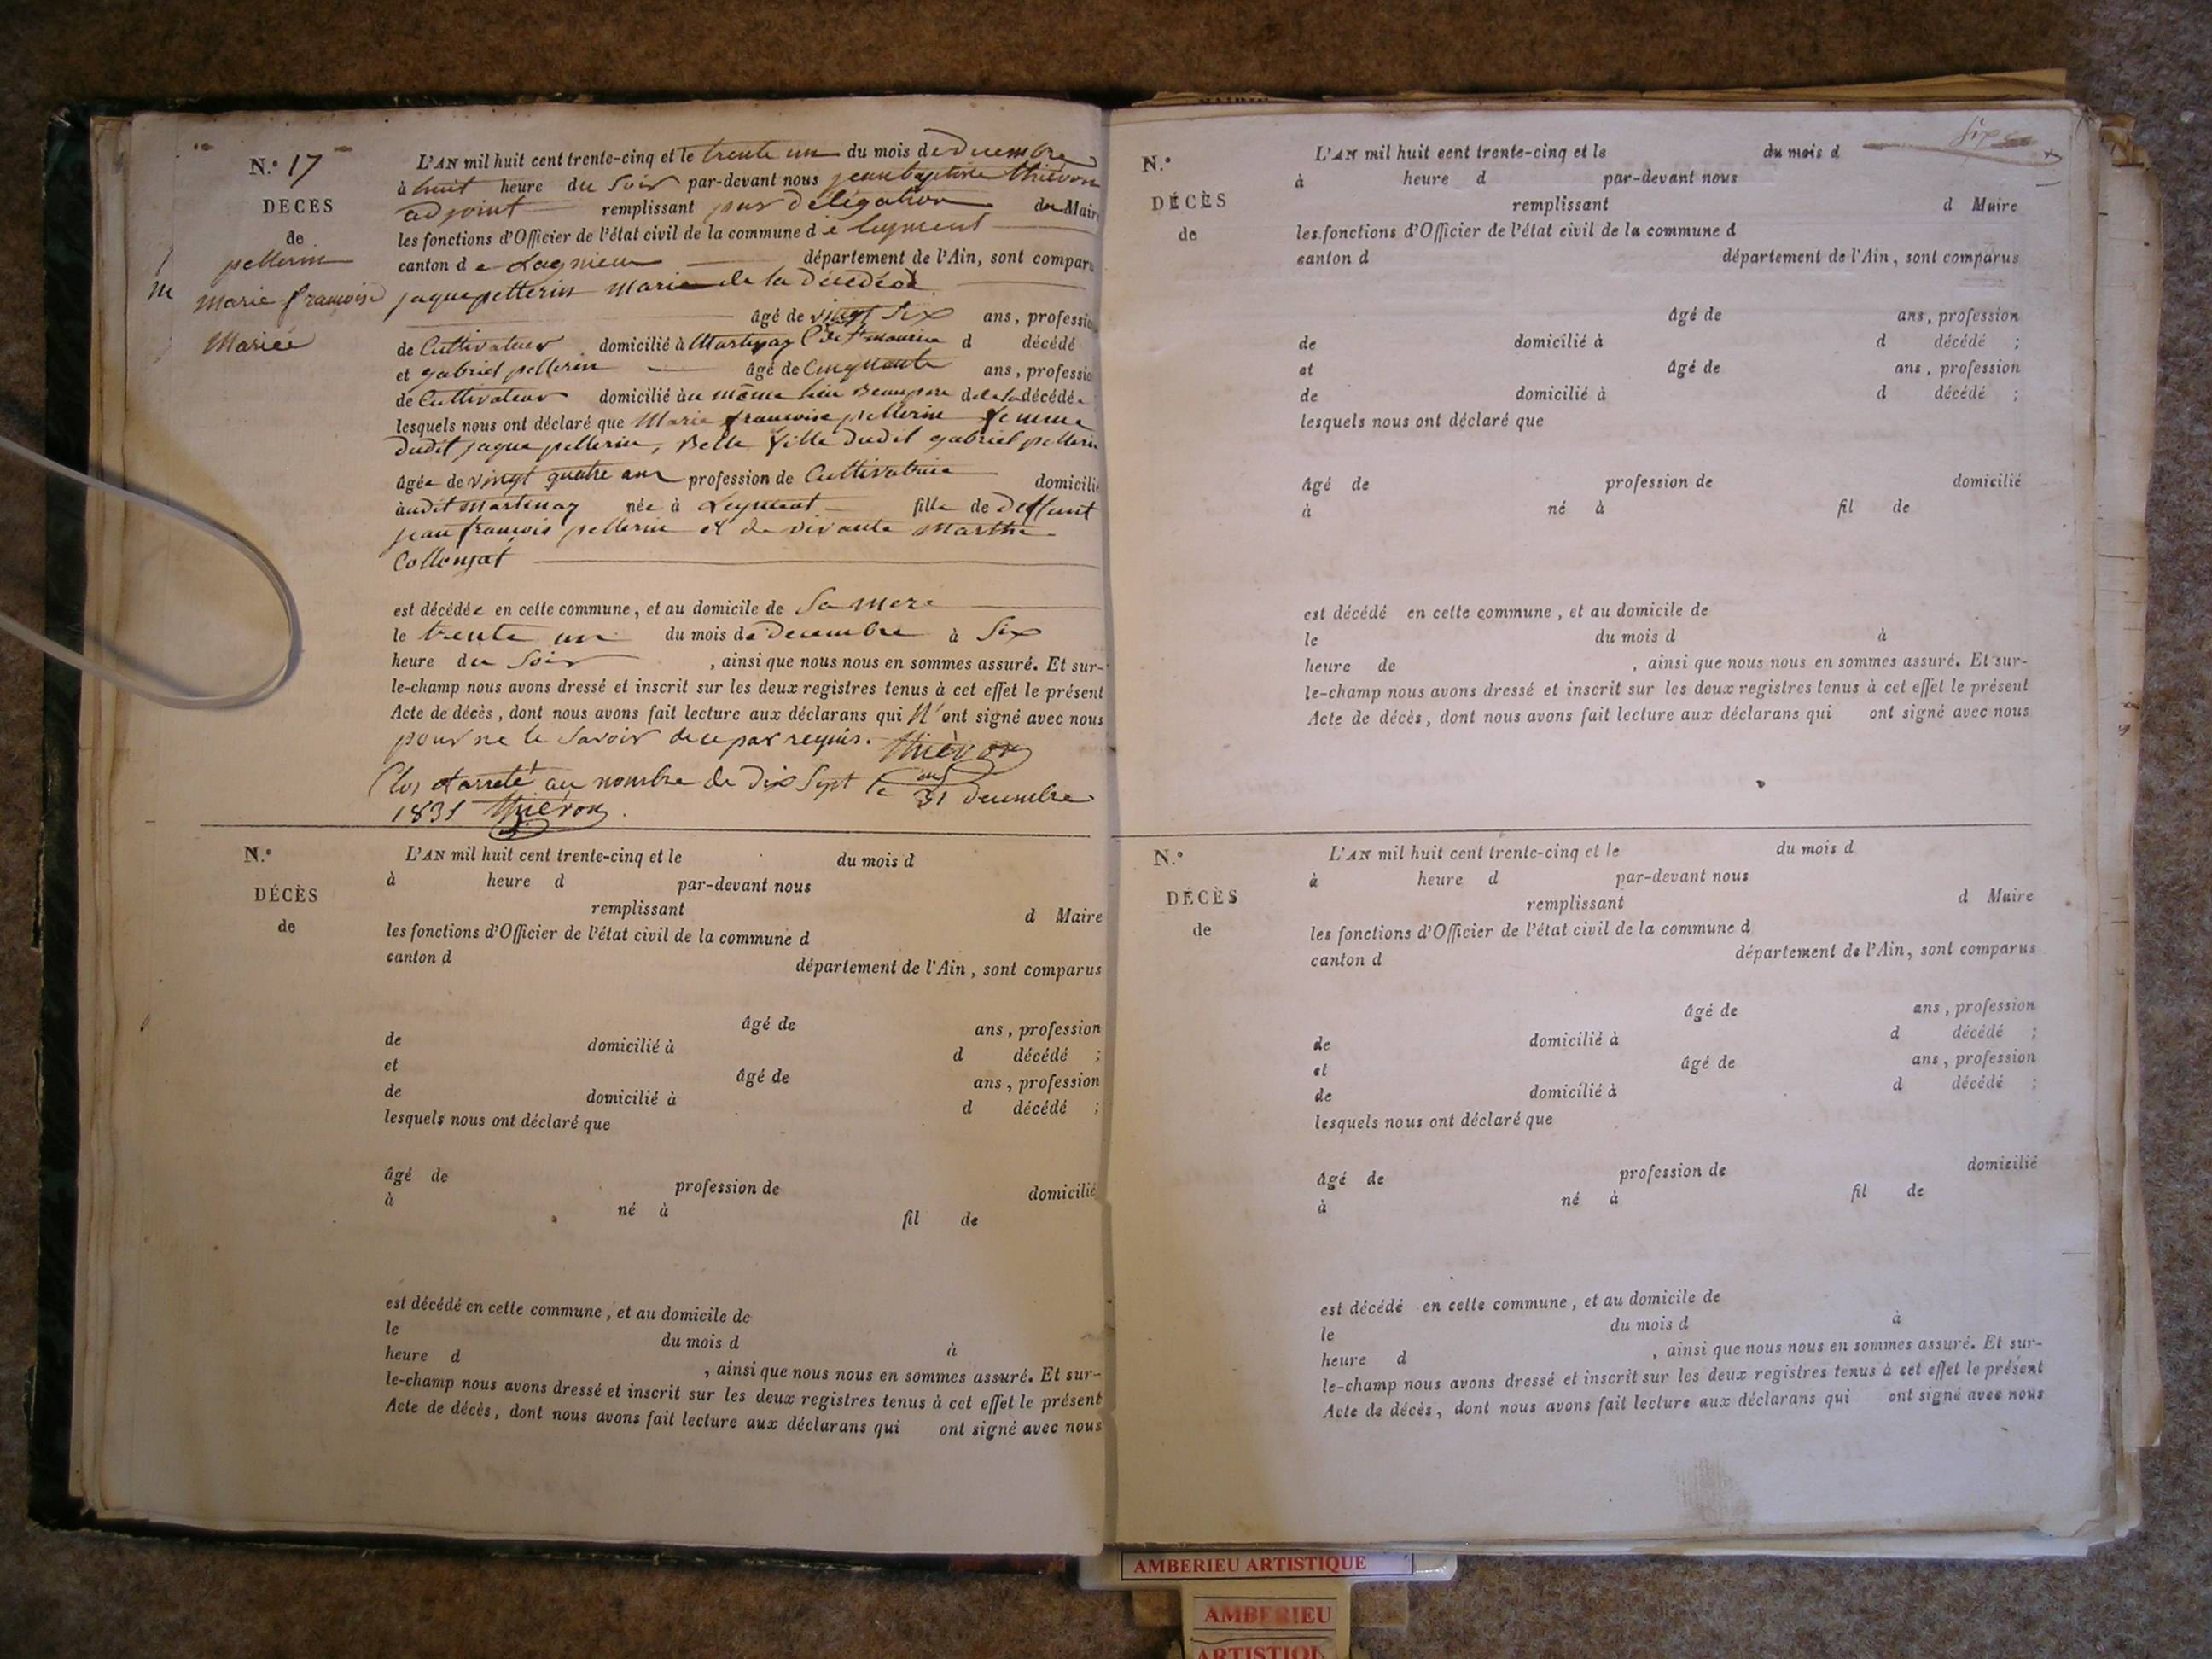 N.° 17
DECES
de
pellerin
marie françoise
Mariée
L'AN mil huit cent trente-cinq et le trente un du mois de Decembre
à huit heure du Soir par-devant nous jean baptiste thiévon
adjoint remplissant par délégation du Maire
les fonctions d'Officier de l'état civil de la commune de leyment
canton de Lagnieu département de l'Ain, sont comparu
jaque pellerin mari de la décédée
âgé de vingt Six ans, profession
de Cultivateur domicilié à Martinaz d décédé
et gabriel pellerin âgé de Cinquante ans, profession
de Cultivateur domicilié au même lieu Beaupere de la décédée
lesquels nous ont déclaré que Marie françoise pellerin femme
dudit jaque pellerin, Belle fille dudit gabriel pellerin
âgée de vingt quatre ans profession de Cultivatrice domicilié
audit Martinaz née à Leyment fille de deffunt
jean françois pellerin et de vivante Marthe
Collonjat
est décédée en cette commune, et au domicile de Sa mere
le trente un du mois de Decembre à Six
heure du Soir, ainsi que nous nous en sommes assuré. Et sur-
le-champ nous avons dressé et inscrit sur les deux registres tenus à cet effet le présent
Acte de décès, dont nous avons fait lecture aux déclarans qui N'ont signé avec nous
pour ne le Savoir de ce par requis. thiévon
Clos et arreté au nombre de Dix Sept le 31 decembre
1835 thiévon
N.°
DÉCÈS
de
L'AN mil huit cent trente-cinq et le du mois d
à heure d par-devant nous
remplissant d Maire
les fonctions d'Officier de l'état civil de la commune d
canton d département de l'Ain, sont comparus
âgé de ans, profession
de domicilié à d décédé ;
et âgé de ans, profession
de domicilié à d décédé ;
lesquels nous ont déclaré que
âgé de profession de domicilié
à né à fil de
est décédé en cette commune, et au domicile de
le du mois d à
heure d , ainsi que nous nous en sommes assuré. Et sur-
le-champ nous avons dressé et inscrit sur les deux registres tenus à cet effet le présent
Acte de décès, dont nous avons fait lecture aux déclarans qui ont signé avec nous
Six
N.°
DÉCÈS
de
L'AN mil huit cent trente-cinq et le du mois d
à heure d par-devant nous
remplissant d Maire
les fonctions d'Officier de l'état civil de la commune d
canton d département de l'Ain, sont comparus
âgé de ans, profession
de domicilié à d décédé ;
et âgé de ans, profession
de domicilié à d décédé ;
lesquels nous ont déclaré que
âgé de profession de domicilié
à né à fil de
est décédé en cette commune, et au domicile de
le du mois d à
heure de , ainsi que nous nous en sommes assuré. Et sur-
le-champ nous avons dressé et inscrit sur les deux registres tenus à cet effet le présent
Acte de décès, dont nous avons fait lecture aux déclarans qui ont signé avec nous
N.°
DÉCÈS
de
L'AN mil huit cent trente-cinq et le du mois d
à heure d par-devant nous
remplissant d Maire
les fonctions d'Officier de l'état civil de la commune d
canton d département de l'Ain, sont comparus
âgé de ans, profession
de domicilié à d décédé ;
et âgé de ans, profession
de domicilié à d décédé ;
lesquels nous ont déclaré que
âgé de profession de domicilié
à né à fil de
est décédé en cette commune, et au domicile de
le du mois d à
heure d , ainsi que nous nous en sommes assuré. Et sur-
le-champ nous avons dressé et inscrit sur les deux registres tenus à cet effet le présent
Acte de décès, dont nous avons fait lecture aux déclarans qui ont signé avec nous
AMBERIEU ARTISTIQUE
AMBERIEU